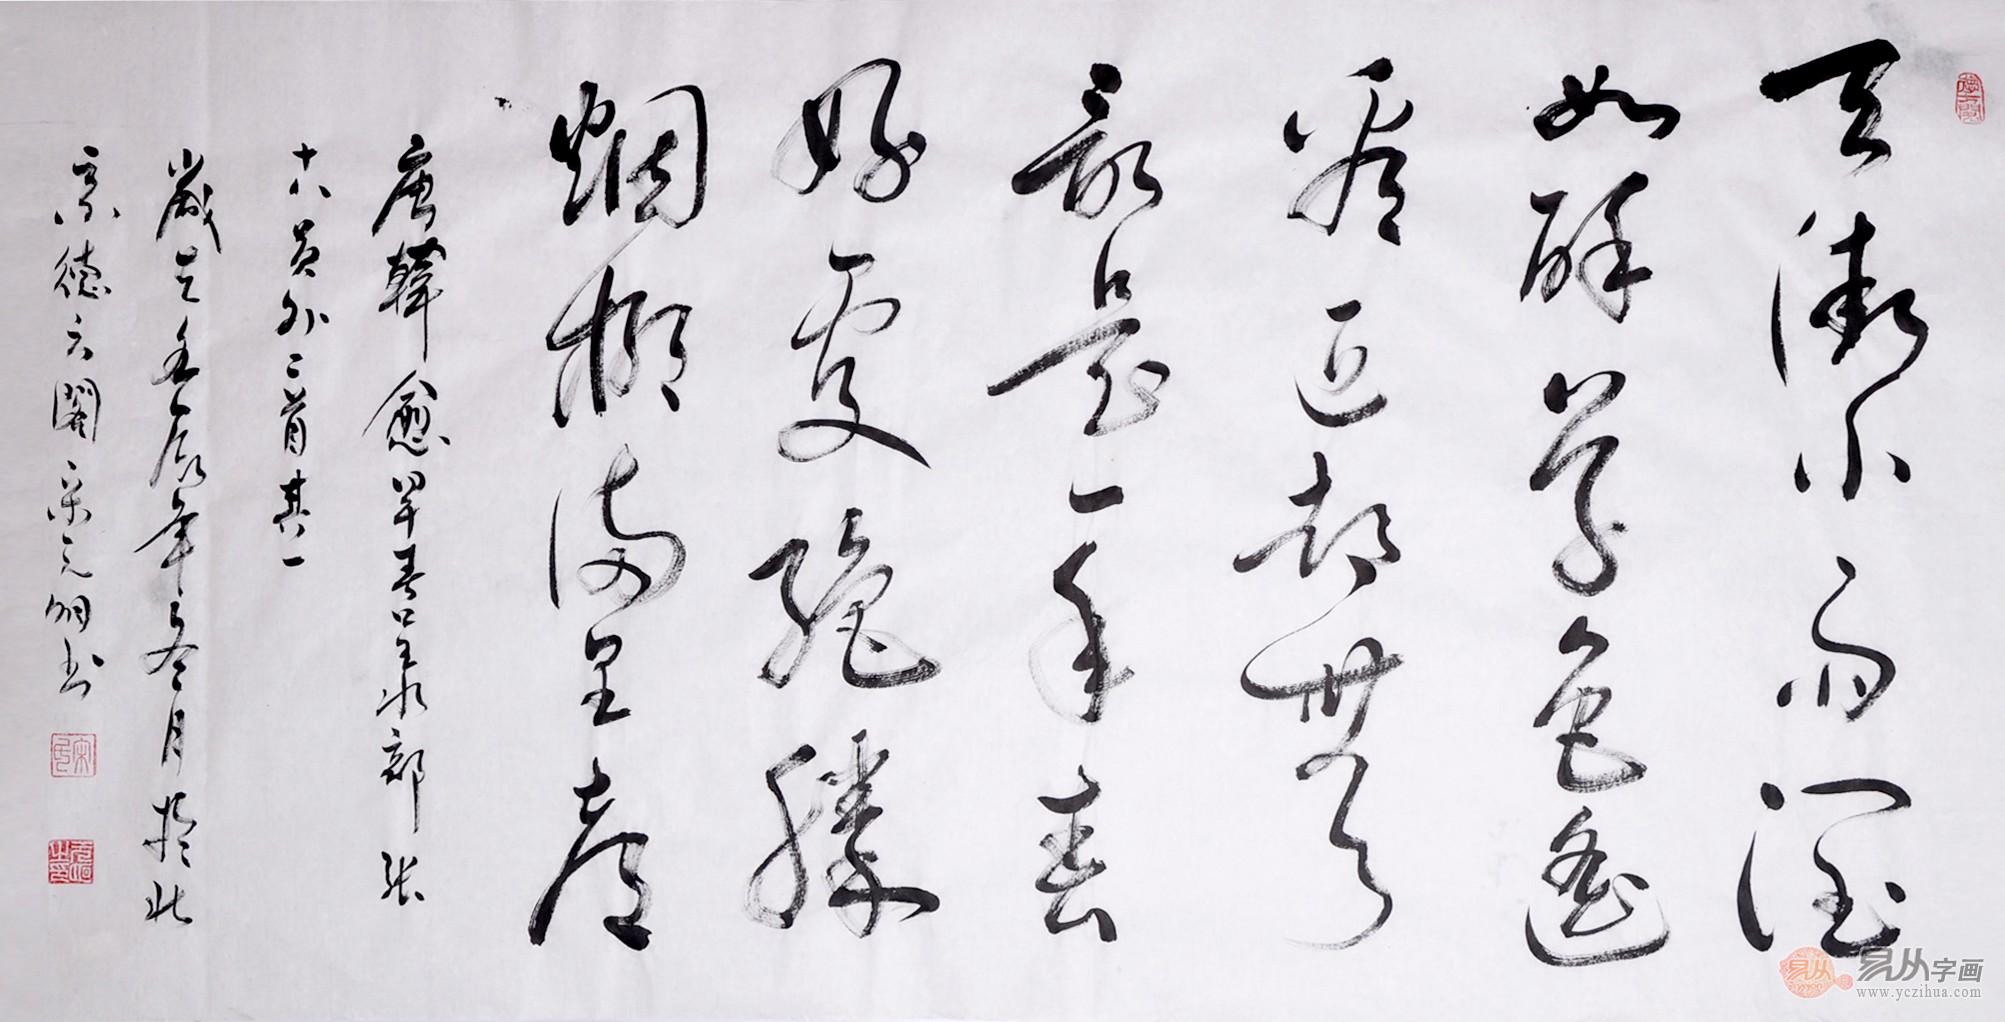 天街小雨潤
如酥草色遥
看近却無
最是一年春
好處絕勝
烟柳滿皇都
唐韓愈早春呈水部張
十八員外二首其一
歲在壬辰年冬月於北
京德云閣宋元明书
易从字画
www.yczihua.com